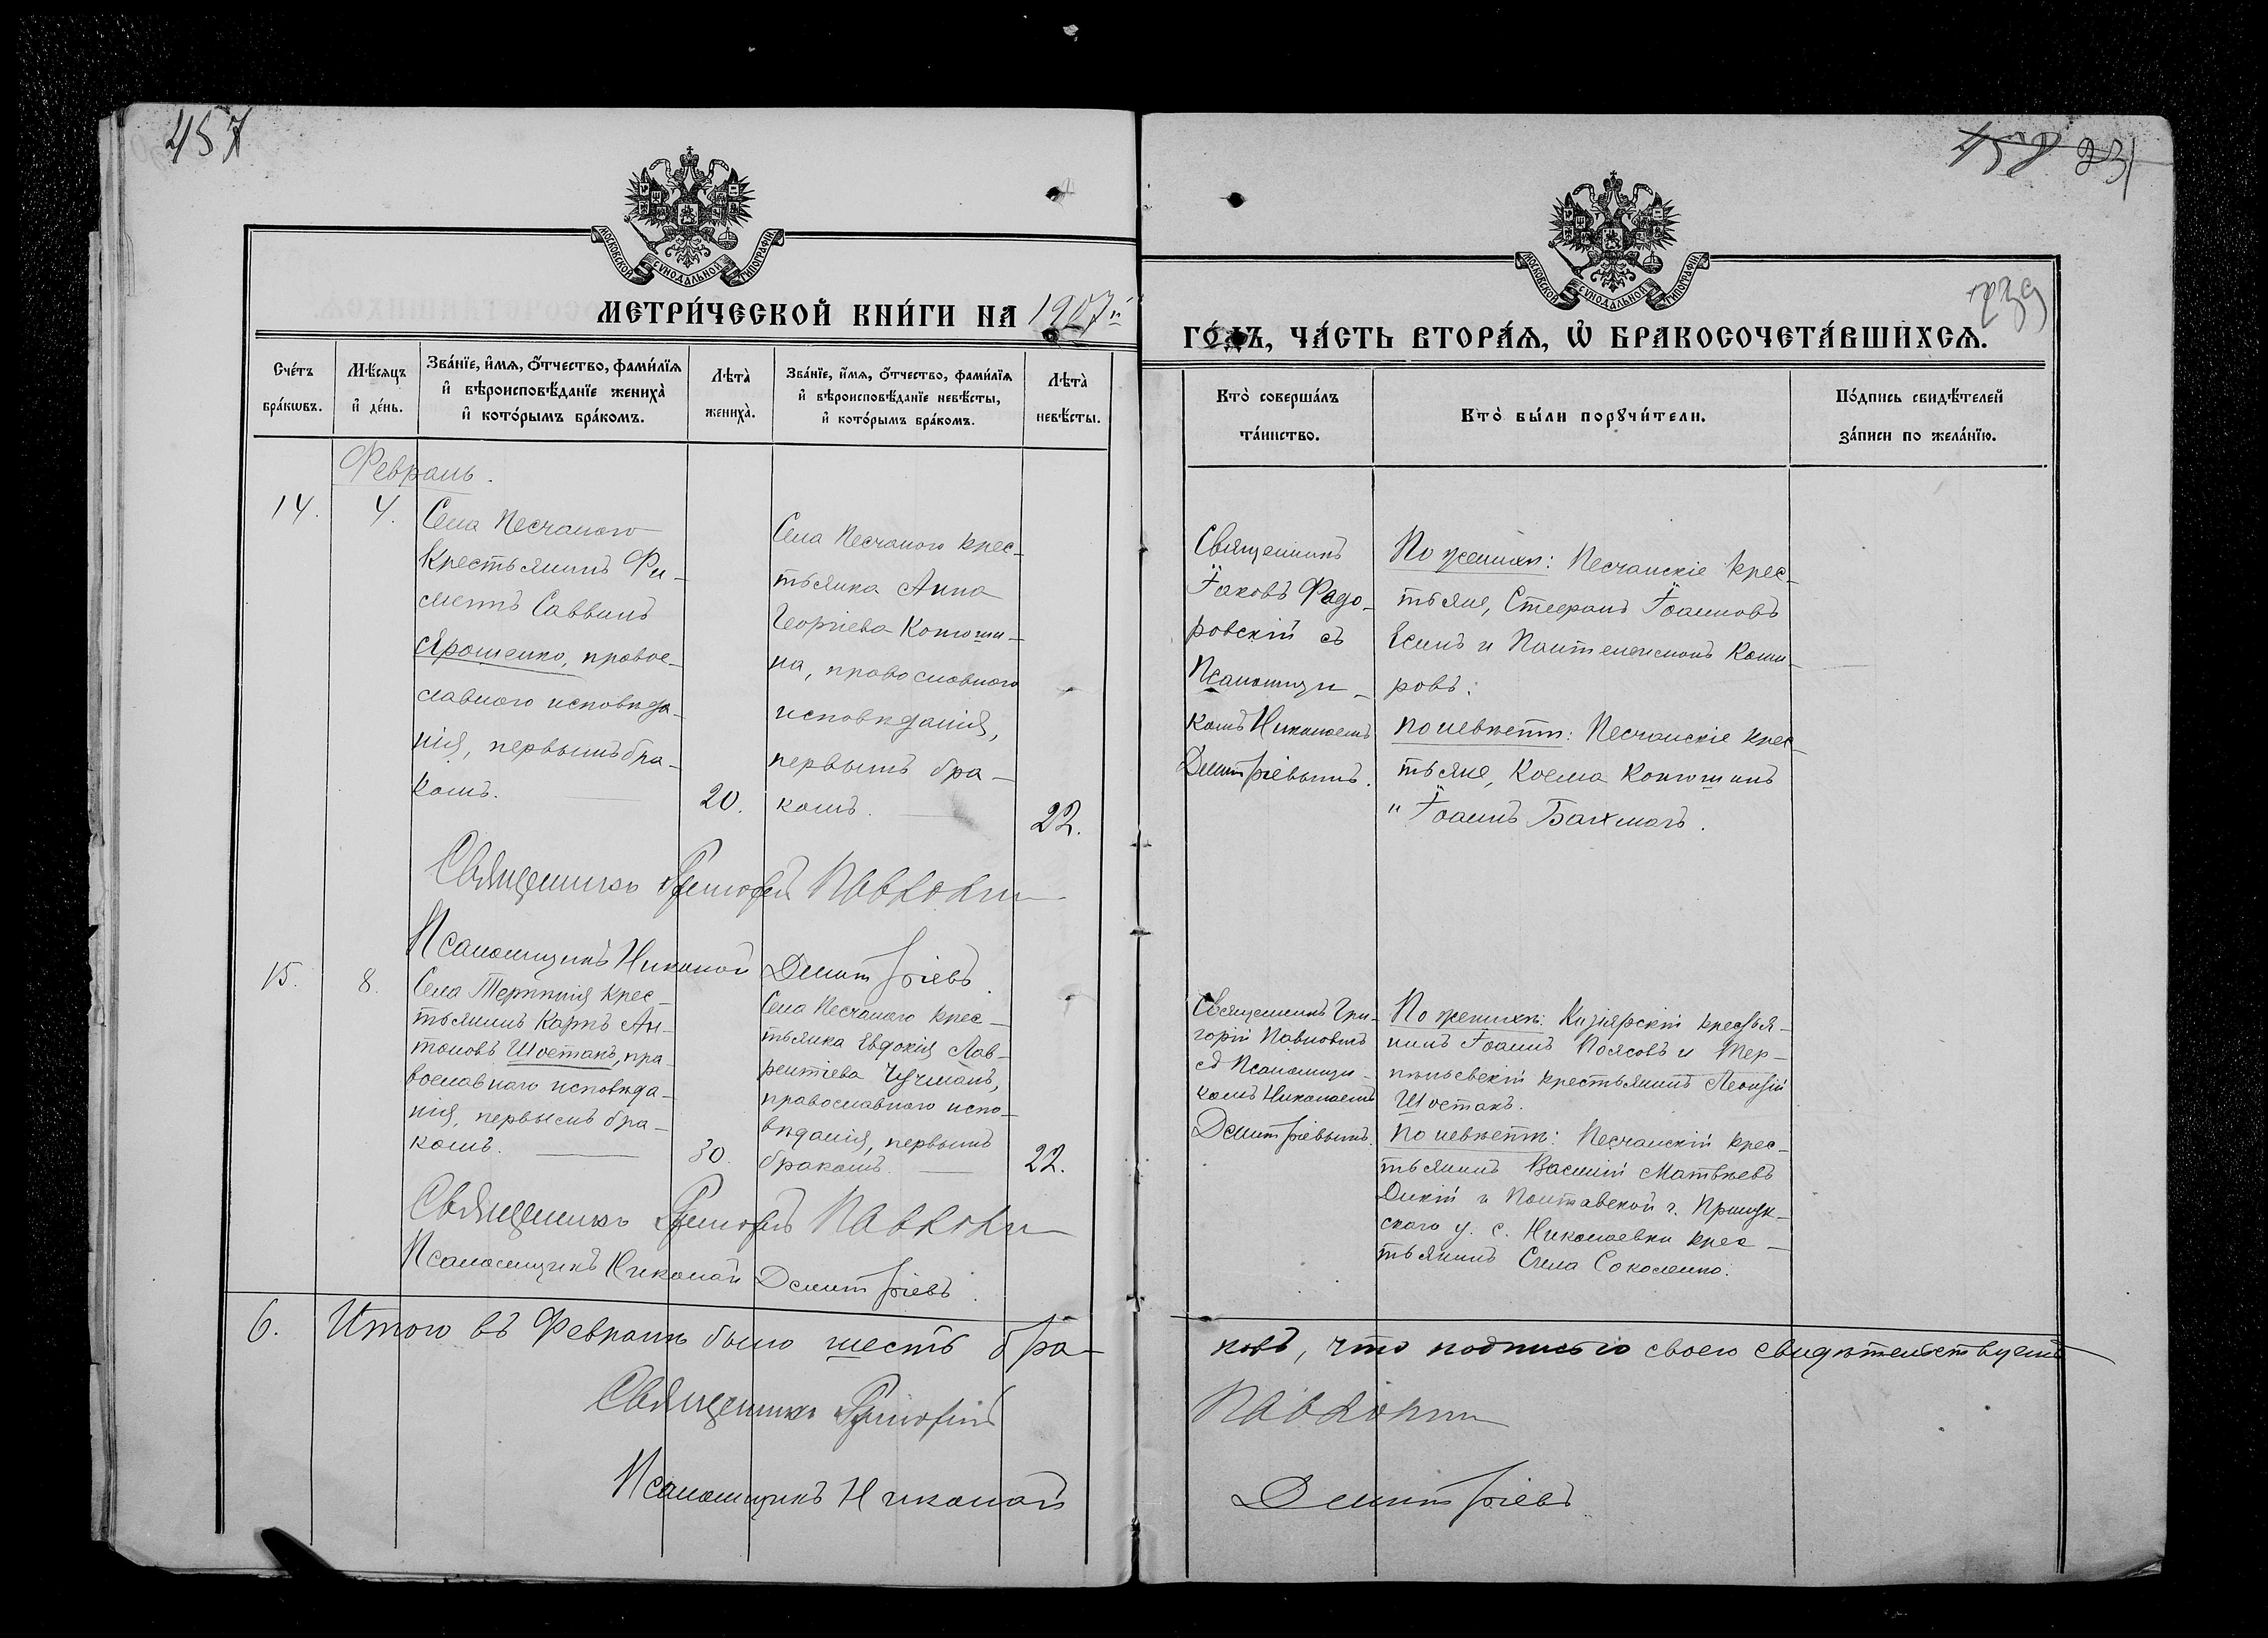 457
458 231
739
МОСКОВСКОЙ СѴНОДАЛЬНОЙ ТИПОГРАФІИ
МЕТРИ́ЧЕСКОЙ КНИ́ГИ НА 1907й
Сче́тъ бра́кѡвъ.
Мѣ́сяцъ и҆ де́нь.
Зва́нїе, и҆́мѧ, ѻ҆́тчество, фами́лїѧ и҆ вѣроисповѣ́данїе жениха̀ и҆ кото́рымъ бра́комъ.
Лѣта̀ жениха̀.
Зва́нїе, и҆́мѧ, ѻ҆́тчество, фами́лїѧ и҆ вѣроисповѣ́данїе невѣ́сты, и҆ кото́рымъ бра́комъ.
Лѣта̀ невѣ́сты.
Февраль.
14.
4.
Села Песчаного
крестьянинъ Фи-
липпъ Саввинъ
Ярошенко, право-
славного исповѣда-
нія, первымъ бра-
комъ.
20.
Села Песчаного крес-
тьянка Анна
Георгіева Копюши-
на, православного
исповѣданія,
первымъ бра-
комъ.
22.
Священникъ Григорій Павловъ
Псаломщикъ Николай Димитріевъ.
15.
8.
Села Терпѣнія крес-
тьянинъ Карпъ Ан-
тоновъ Шостакъ, пра-
вославного исповѣда-
нія, первымъ бра-
комъ.
30.
Села Песчаного крес-
тьянка Евдокія Лав-
рентіева Чучманъ,
православного испо-
вѣданія, первымъ
бракомъ.
22.
Священникъ Григорій Павловъ
Псаломщикъ Николай Димитріевъ.
6. Итого въ Февралѣ было шесть бра-
Священникъ Григорій
Псаломщикъ Николай
МОСКОВСКОЙ СѴНОДАЛЬНОЙ ТИПОГРАФІИ
ГО́ДЪ, ЧА́СТЬ ВТОРА́Ѧ, Ѡ҆ БРАКОСОЧЕТА́ВШИХСѦ.
Кто̀ соверша́лъ та́инство.
Кто̀ бы́ли порꙋчи́тели.
По́дпись свидѣ́телей за́писи по жела́нїю.
Священникъ
Іаковъ Фадо-
ровскій съ
Псаломщи-
комъ Николаемъ
Димитріевымъ.
По женихѣ: Песчанскіе крес-
тьяне, Стефанъ Іоанновъ
Есинъ и Пантелеимонъ Каши-
ровъ.
По невѣстѣ: Песчанскіе крес-
тьяне, Косма Копюшинъ
и Іоаннъ Бахмачъ.
Священникъ Гри-
горій Павловъ
съ Псаломщи-
комъ Николаемъ
Димитріевымъ.
По женихѣ: Кизіярскій крестья-
нинъ Іоаннъ Поясовъ и Тер-
пѣньевскій крестьянинъ Леонтій
Шостакъ.
По невѣстѣ: Песчанскій крес-
тьянинъ Василій Матвѣевъ
Дикій и Полтавской г. Прилук-
скаго у. с. Николаевки крес-
тьянинъ Сила Соколенко.
ковъ, что подписью своею свидѣтельствуемъ
Павловъ
Димитріевъ